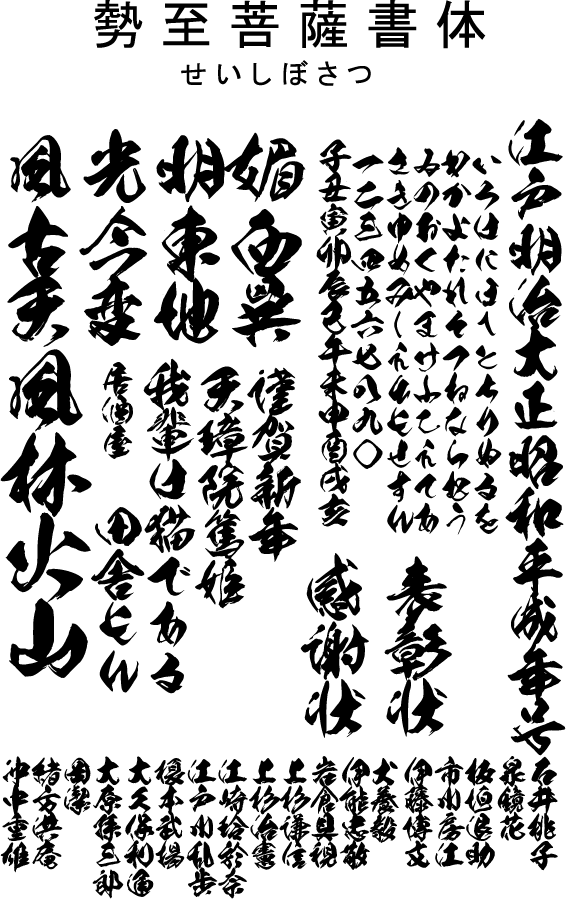 勢至菩薩書体
せいしぼさつ
江戸明治大正昭和平成年号
いろはにほへとちりぬるを
わかよたれそつねならむう
ゐのおくやまけふこえてあ
さきゆめみしゑひもせすん
一二三四五六七八九〇
子丑寅卯辰巳午未申酉戌亥
表彰状
感謝状
媚西異
明東地
光今変
風古天
謹賀新年
天璋院篤姫
我輩は猫である
居酒屋
田舎もん
風林火山
石井桃子
泉鏡花
板垣退助
市川房江
伊藤博文
犬養毅
伊能忠敬
岩倉具視
上杉謙信
上杉治憲
江崎玲於奈
江戸川乱歩
榎本武揚
大久保利通
大原孫三郎
岡潔
緒方洪庵
沖中重雄